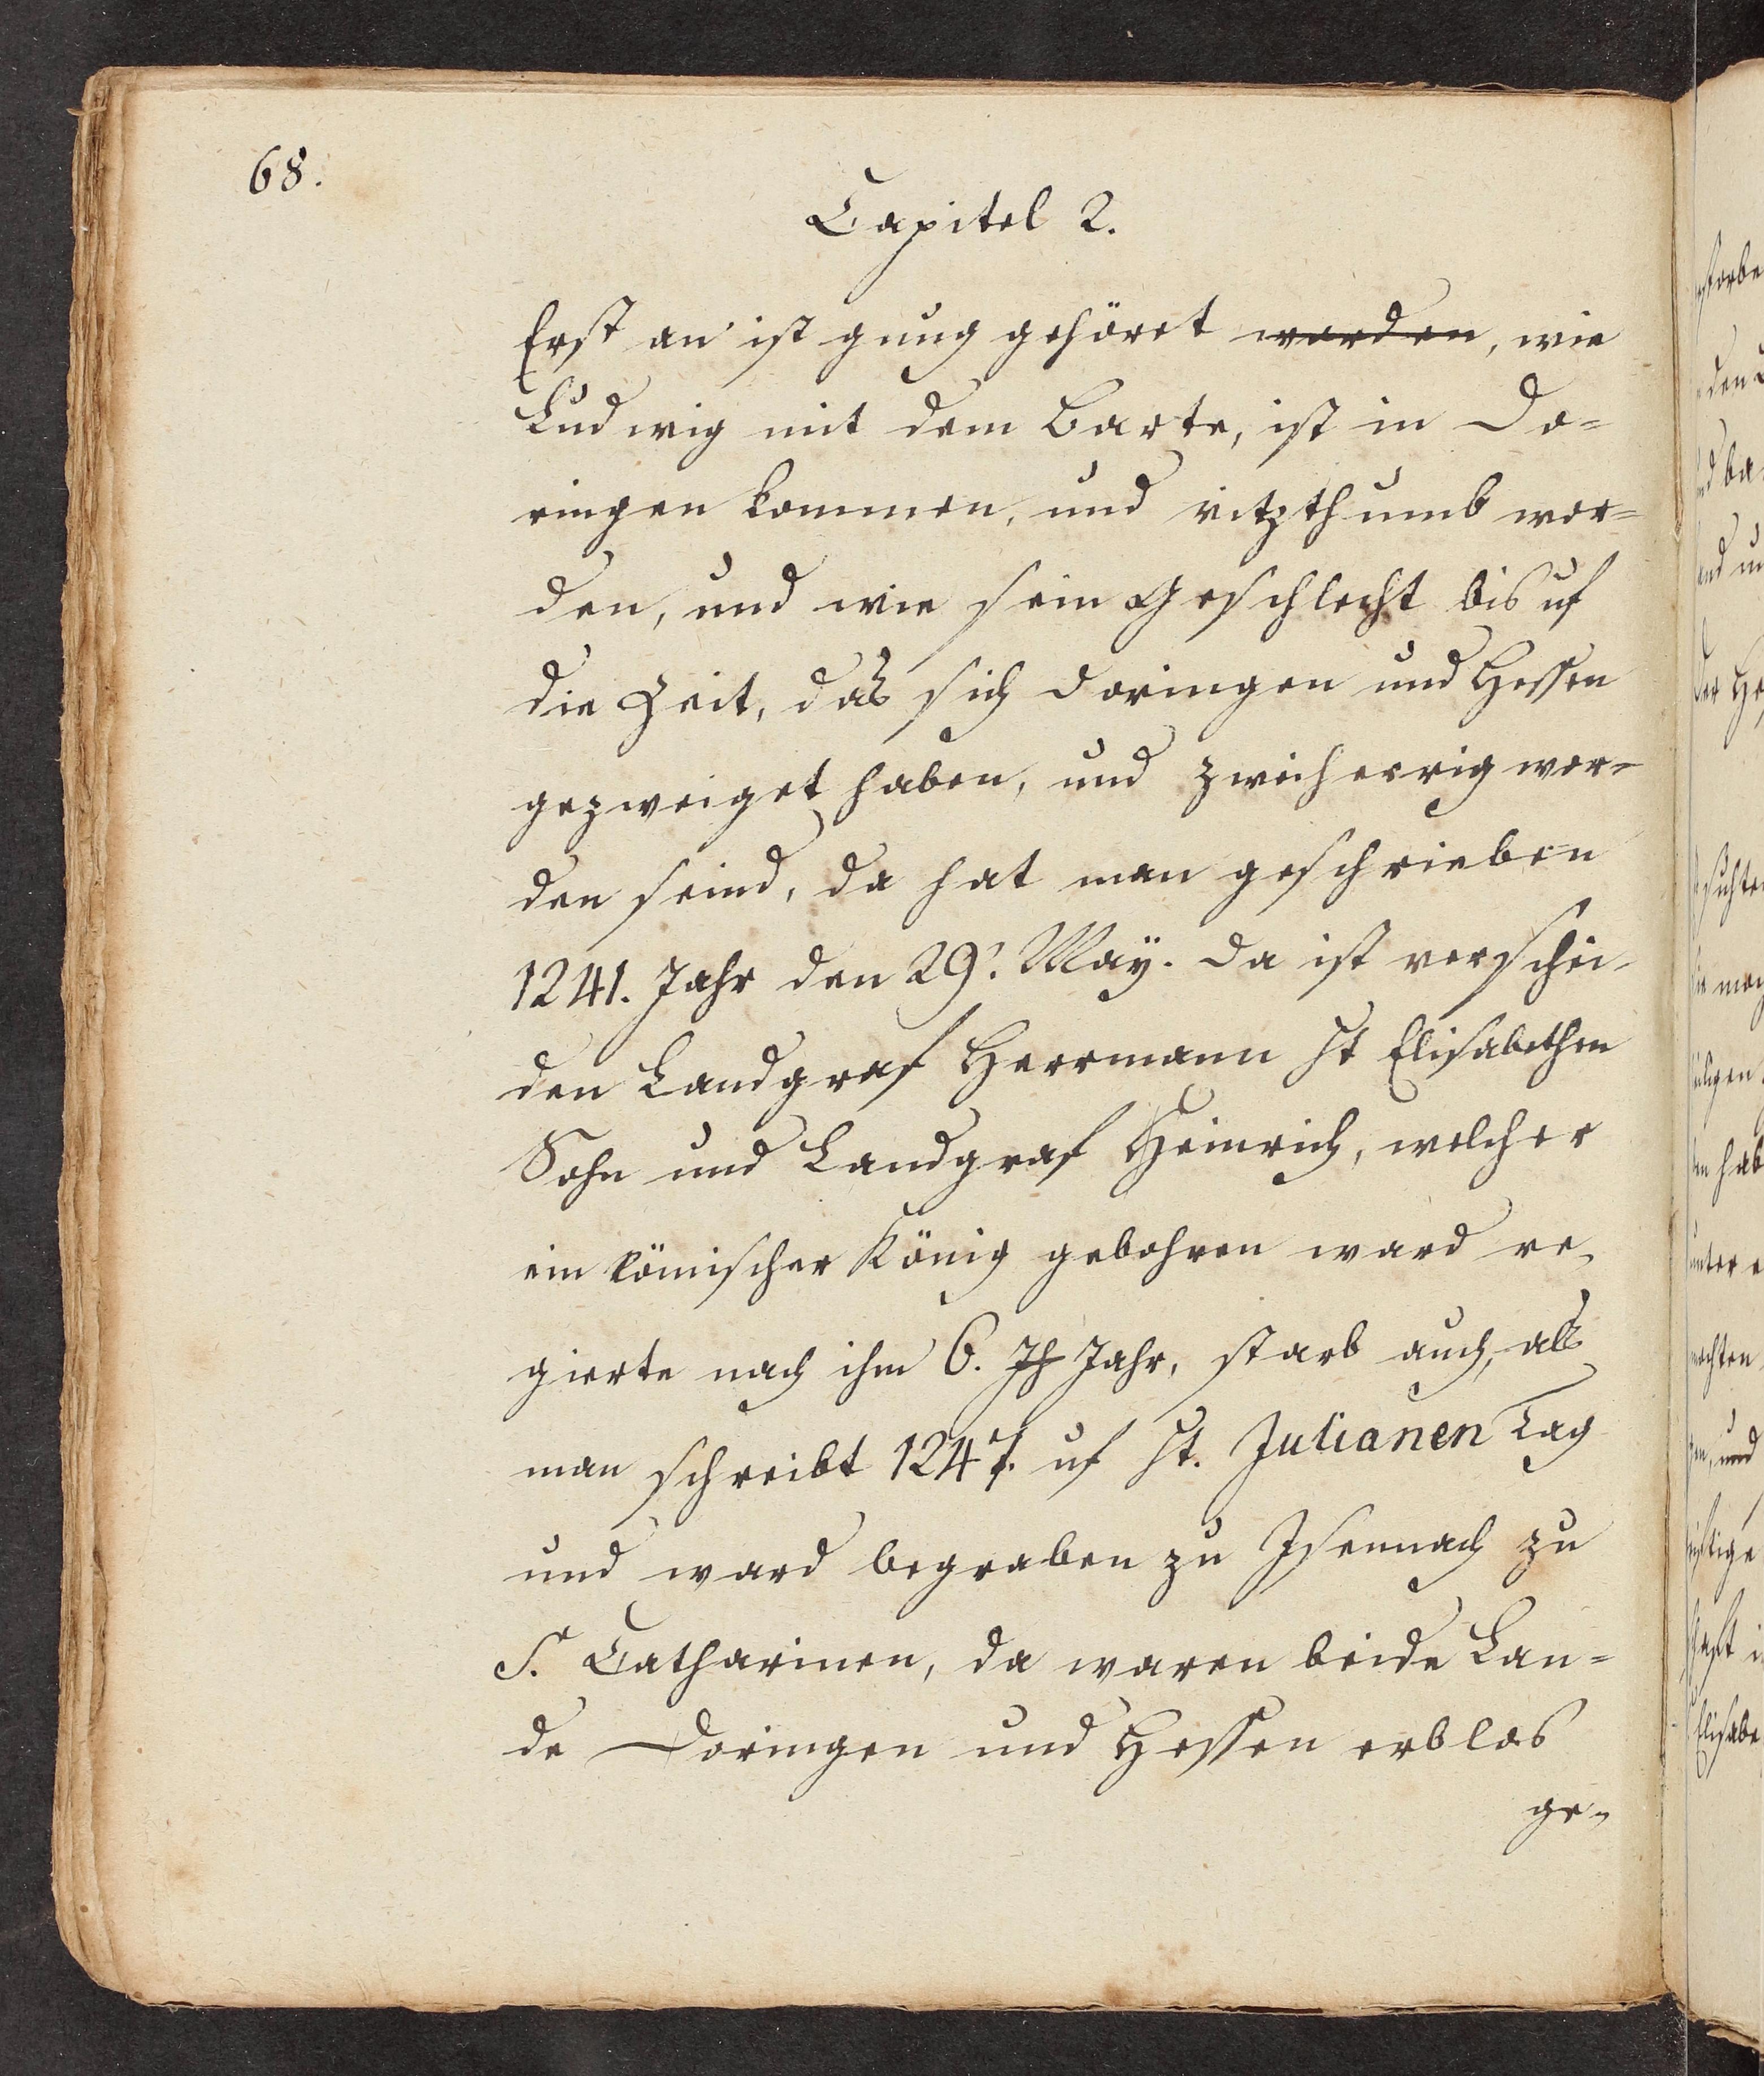 68.
Capitel 2.
Erst an ist gnug gehöret worden, wie
Ludwig mit dem Barte, ist in Do=
ringen kommen, und vitzthumb wor=
den, und wie sein Geschlecht bis uf
die Zeit, das sich Doringen und Hessen
gezweiget haben, und zwieherrig wor=
den seind, da hat man geschrieben
1241. Jahr den 29. May. da ist verschie-
den Landgraf Herrmann St Elisabethen
Sohn und Landgraf Heinrich, welcher
ein Römischer König gebohren ward re-
gierte nach ihm 6. Jh Jahr, starb auch, als
man schreibt 1247. uf St. Julianen Tag
und ward begraben zu Isennach zu
S. Catharinen, da waren beide Lan=
de Doringen und Hessen erblos
ge-